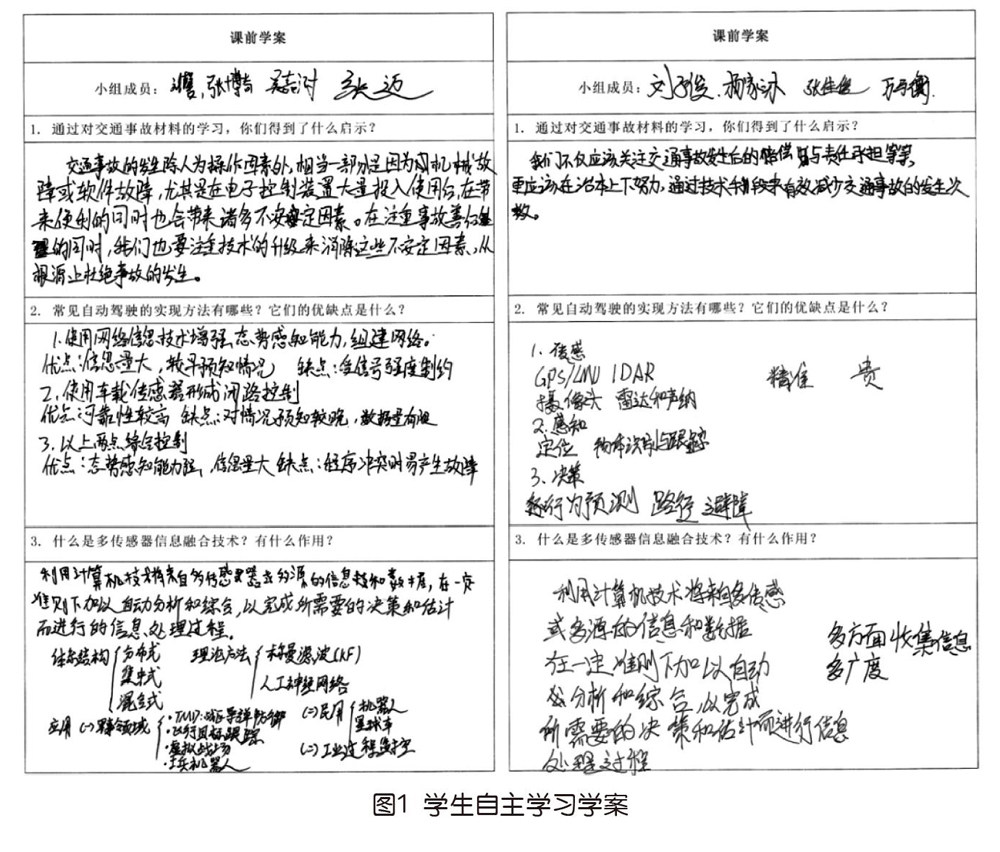 课前学案
小组成员：张博 张迈
1. 通过对交通事故材料的学习，你们得到了什么启示？
交通事故的发生除人为操作因素外，相当一部分是因为机械故
障或软件故障，尤其是在电子控制装置大量投入使用后，在带
来便利的同时也会带来诸多不安定因素。在注重事故善后
的同时，我们也要注重技术的升级来消除这些不安定因素，从
根源上杜绝事故的发生。
2. 常见自动驾驶的实现方法有哪些？它们的优缺点是什么？
1.使用网络信息技术增强态势感知能力，组建网络。
优点：信息量大，较早预知情况 缺点：受信号强度制约
2.使用车载传感器形成闭路控制
优点：可靠性较高 缺点：对情况预知较晚，数据量有限
3.以上两点综合控制
优点：态势感知能力强，信息量大 缺点：程序冲突时易产生故障
3. 什么是多传感器信息融合技术？有什么作用？
利用计算机技术将来自多传感器或多源的信息和数据，在一定
准则下加以自动分析和综合，以完成所需要的决策和估计
而进行的信息处理过程。
体系结构 分布式 集中式 混合式
理论方法 卡尔曼滤波(KF) 人工神经网络
应用 (一)军事领域 ·TMD:战区导弹防御 ·飞行目标跟踪 ·虚拟战场 ·士兵机器人
(二)民用 机器人 星球车
(三)工业过程监控
课前学案
小组成员：刘子俊 杨家沐 张佳 万子衡
1. 通过对交通事故材料的学习，你们得到了什么启示？
我们不仅应该关注交通事故发生后的赔偿与责任承担等等，
更应该在治本上下努力，通过技术手段来有效减少交通事故的发生次
数。
2. 常见自动驾驶的实现方法有哪些？它们的优缺点是什么？
1.传感
GPS/IMU LIDAR 精准 贵
摄像头 雷达和声纳
2.感知
定位 物体识别与跟踪
3.决策
行为预测 路径 避障
3. 什么是多传感器信息融合技术？有什么作用？
利用计算机技术将来自多传感
或多源的信息和数据
在一定准则下加以自动
分析和综合，以完成
所需要的决策和估计而进行信息
处理过程
多方面收集信息
多广度
图1 学生自主学习学案